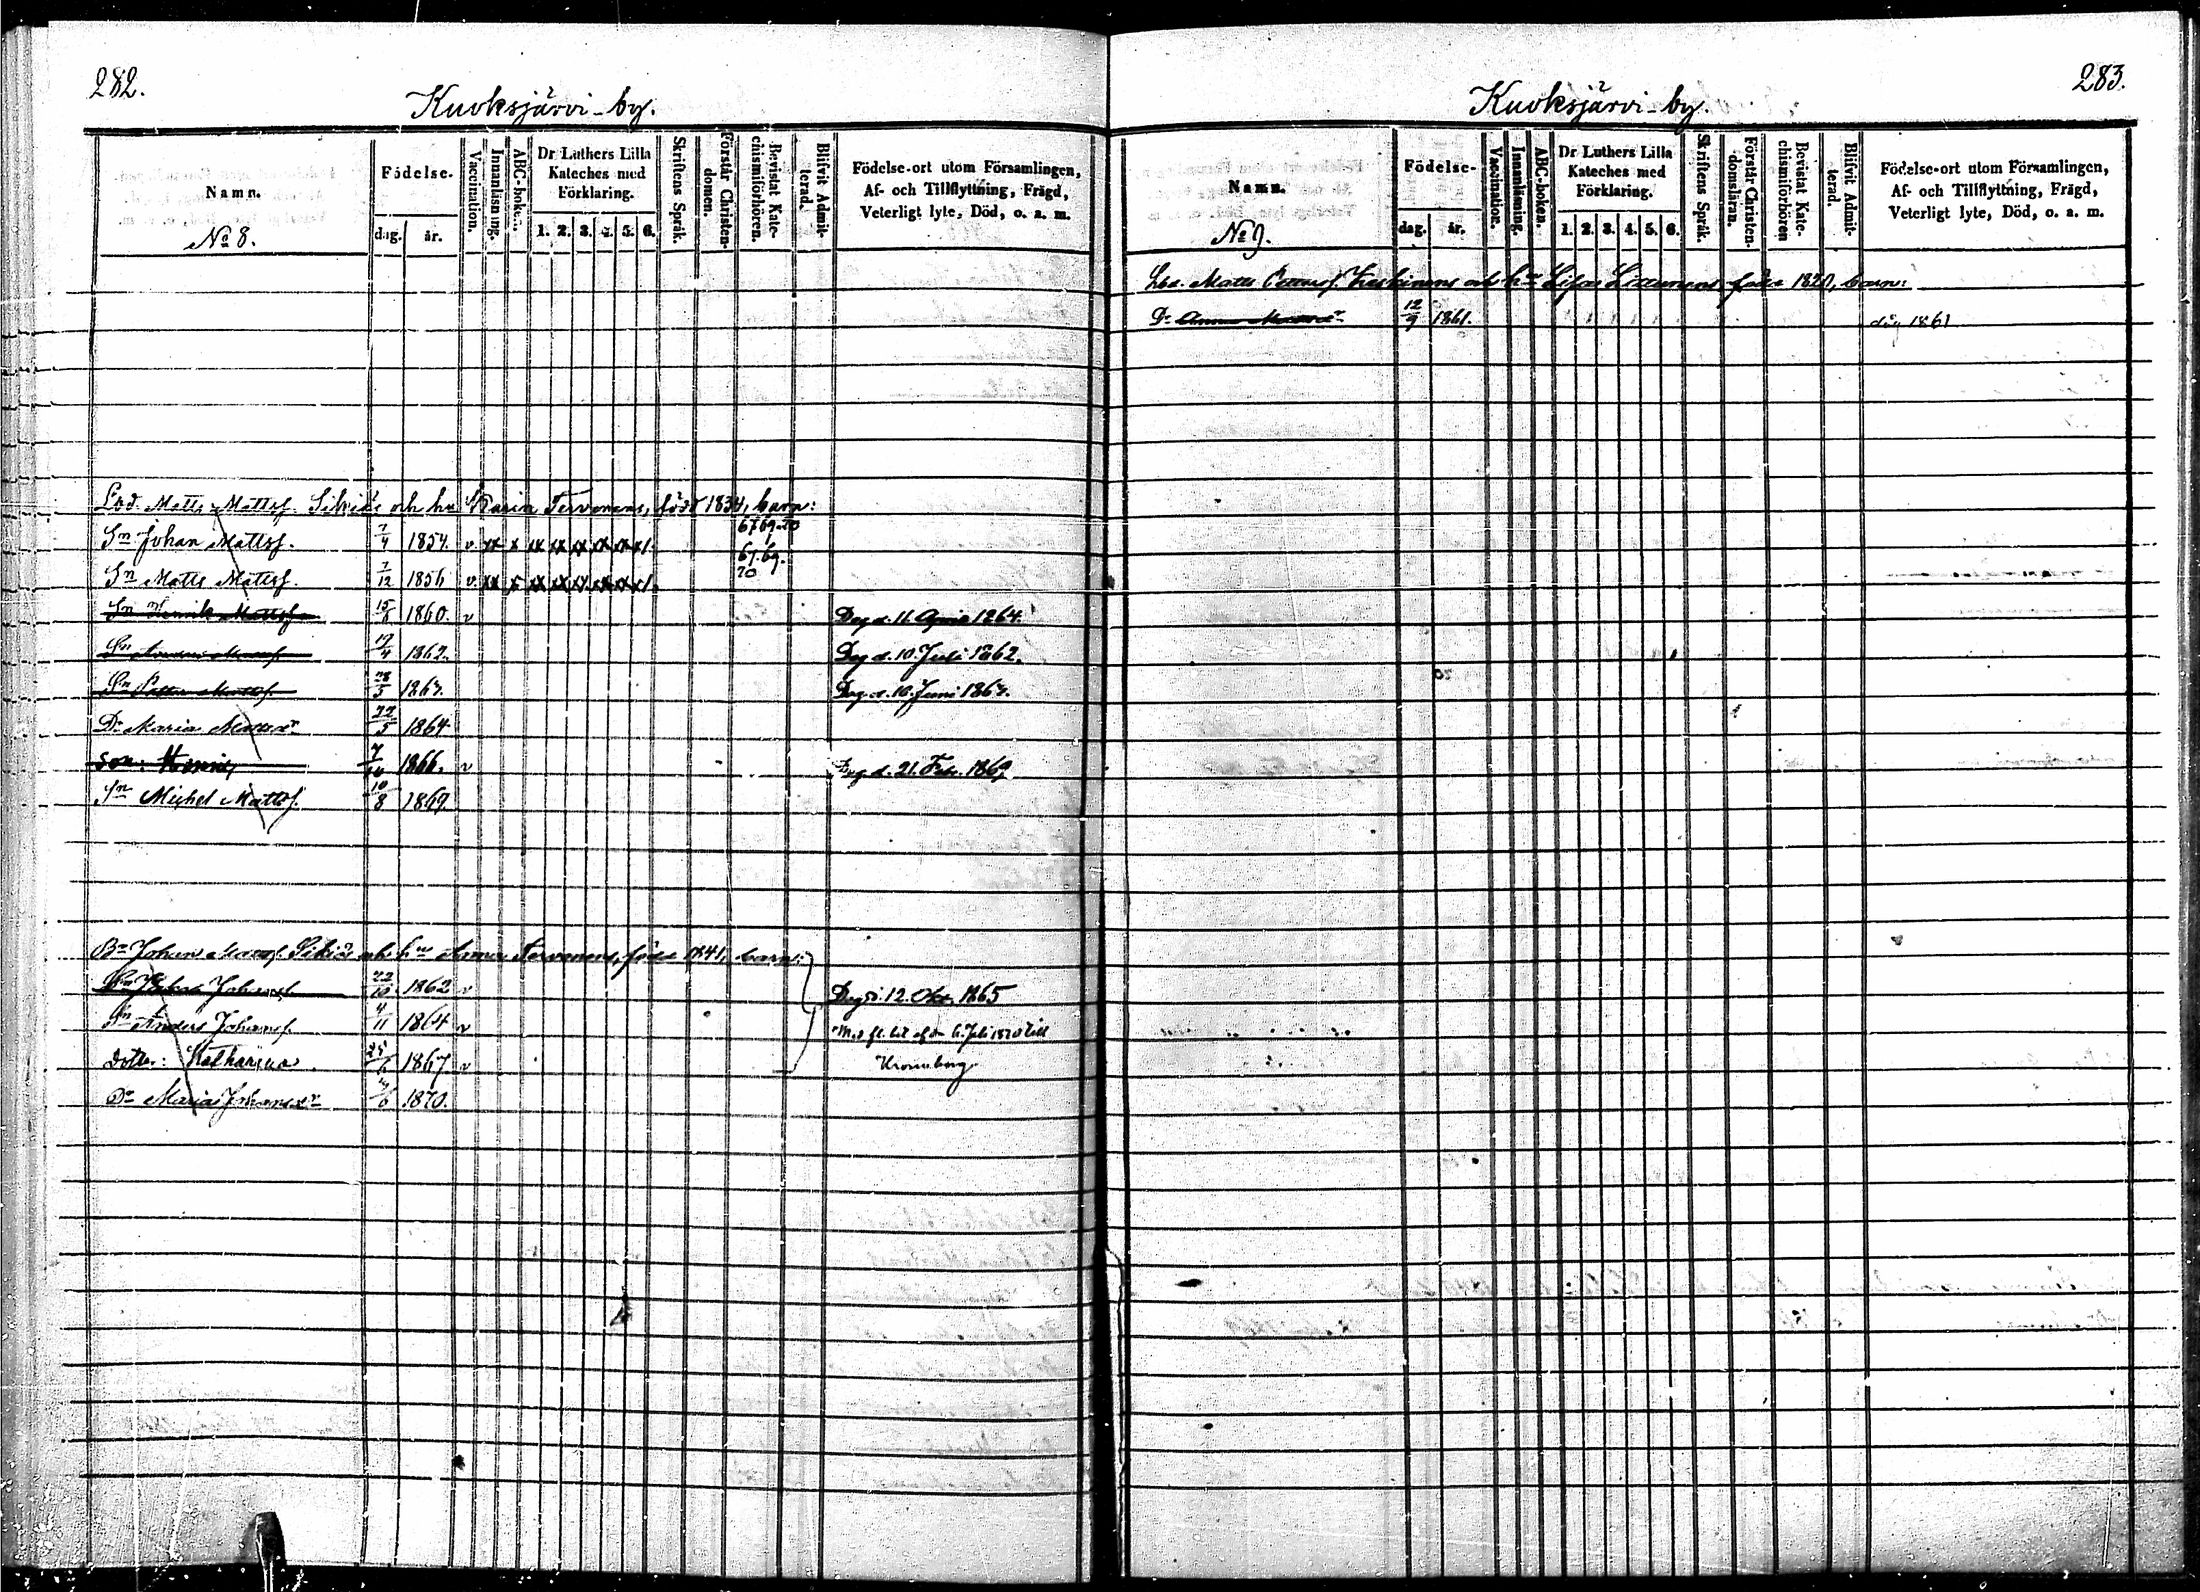 282.
Kuoksjärvi-by.
Namn.
No 8.
Födelse.
dag. år.
Vaccination.
Innanläsning.
ABC-boken.
Dr Luthers Lilla
Kateches med
Förklaring.
1. 2. 3. 4. 5. 6.
Skriftens Språk.
Förstår Christen-
domen.
Bevistat Kate-
chismiförhören.
Blifvit Admit-
terad.
Födelse-ort utom Församlingen,
Af- och Tillflyttning, Frägd,
Veterligt lyte, Död, o. a. m.
Lbd. Matts Mattsf. och hu Karin Tervonens, född 1834, barn:
Sn Johan Mattsf. 7/4 1854. v xx x xx xx xx xx xx x1. 67.69.70
Sn Matts Mattsf. 7/12 1856 v. xx x xx xx xx xx xx x1. 67.69. 70
Sn Henrik Mattsf 15/6 1860. v Deg d. 11 April 1864.
Sn 17/4 1862. Deg d. 10. Juli 1862.
Sn Petter Mattsf. 28/5 1863. Deg d. 16. Juni 1863.
Dr Maria Mattsdr 22/5 1864
son: 7/10 1866. v Deg d. 21. Febr. 1869
Sn Michel Mattsf. 10/8 1869.
Br Johan Mattsf. och hu Anna Tervonens, född 1841, barn:
Sn Johansf 22/10 1862 v Deg d. 12. Okt. 1865
Sn Anders Johansf. 4/11 1864 v
Dotter: Katharina 25/6 1867 v Kronoborg
Dr Maria Johansdr 1870.
283.
Kuoksjärvi-by.
Namn.
No 9.
Födelse-
dag. år.
Vaccination.
Innanläsning.
ABC-boken.
Dr Luthers Lilla
Kateches med
Förklaring.
1. 2. 3. 4. 5. 6.
Skriftens Språk.
Förstår Christen-
domsläran.
Bevistat Kate-
chismiförhören
Blifvit Admit-
terad.
Födelse-ort utom Församlingen,
Af- och Tillflyttning, Frägd,
Veterligt lyte, Död, o. a. m.
Lbd. Matts Pettersf. och hu Lisa född 1820, barn:
Dr Anna Mattsdr 12/9 1861. död 1861